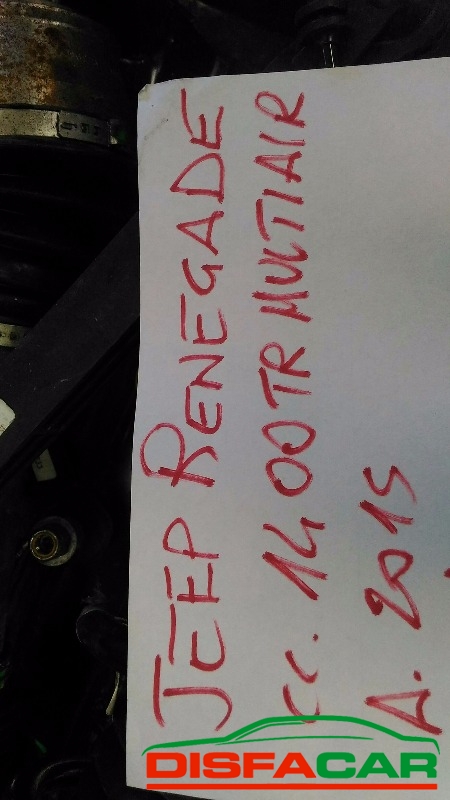 JEEP RENEGADE
CC. 1400 TR MULTIAIR
A. 2015
DISFACAR